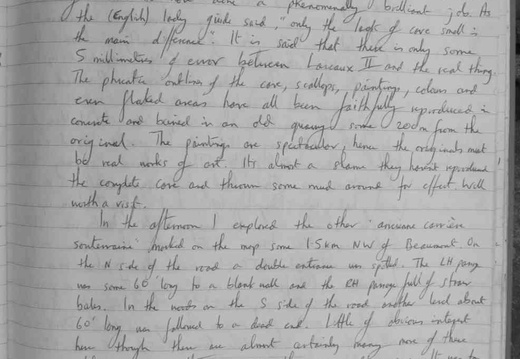 a phenomenally brilliant job. As
the (English) lady guide said, "only the lack of cave smell is
the main difference". It is said that there is only some
5 millimetres of error between Lascaux II and the real thing.
The phreatic outlines of the cave, scallops, paintings, colours and
even flaked areas have all been faithfully reproduced in
concrete and buried in an old quarry some 200m from the
original. The paintings are spectacular, hence the originals must
be real works of art. It's almost a shame they havent reproduced
the complete cave and thrown some mud around for effect. Well
worth a visit.
In the afternoon I explored the other 'ancienne carrière
souterraine' marked on the map some 1.5km NW of Beaumont. On
the N side of the road a double entrance was spotted. The LH passage
was some 60' long to a blank wall and the RH passage full of straw
bales. In the woods on the S side of the road another level about
60' long was followed to a dead end. Little of obvious interest
here though there are almost certainly many more of these